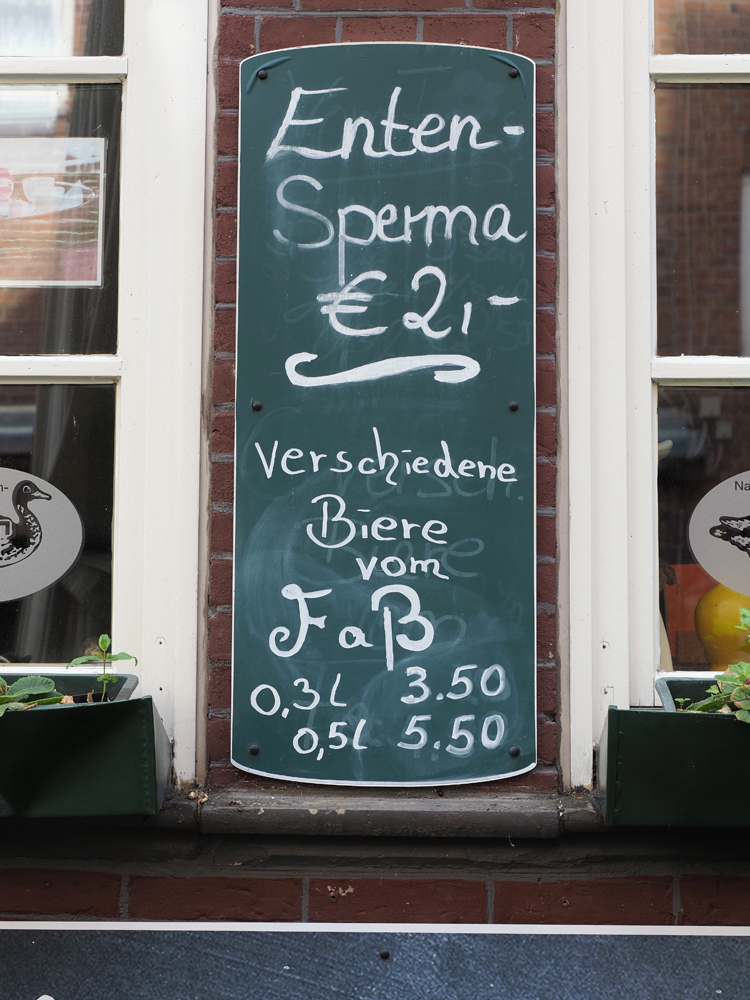 Enten-
Sperma
€ 2,-
Verschiedene
Biere
vom
Faß
0,3l 3.50
0,5l 5.50
Na